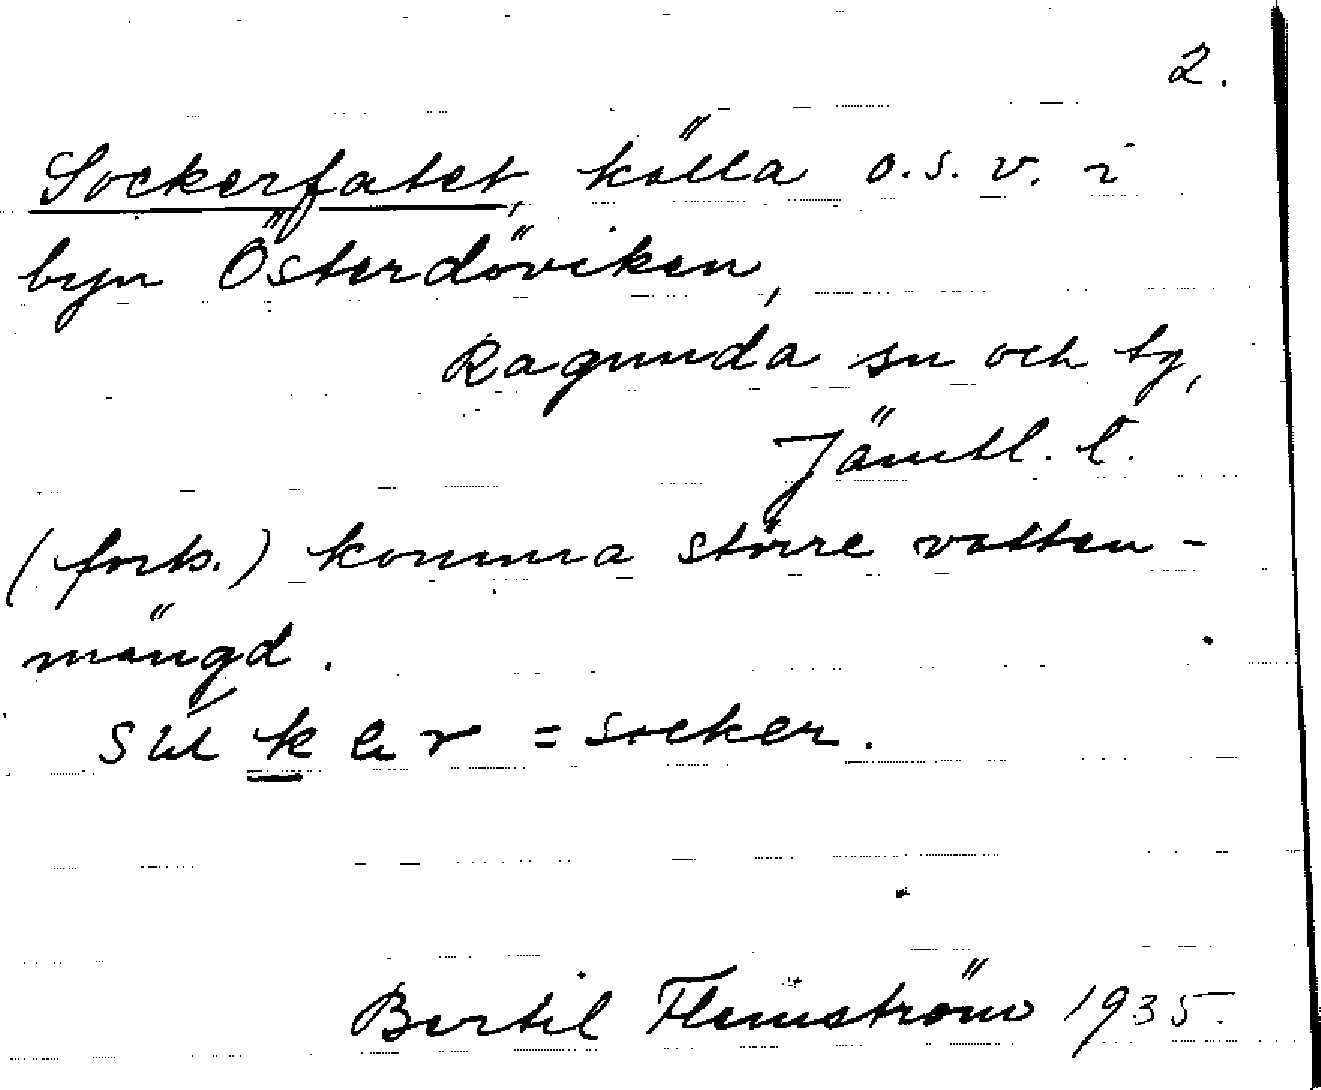 2.
Sockerfatet, källa o.s.v. i
byn Österdöviken,
Ragunda sn och by,
Jämtl. l.
(forts.) komma större vatten-
mängd.
k e r = socker.
Bertil Flemström 1935.